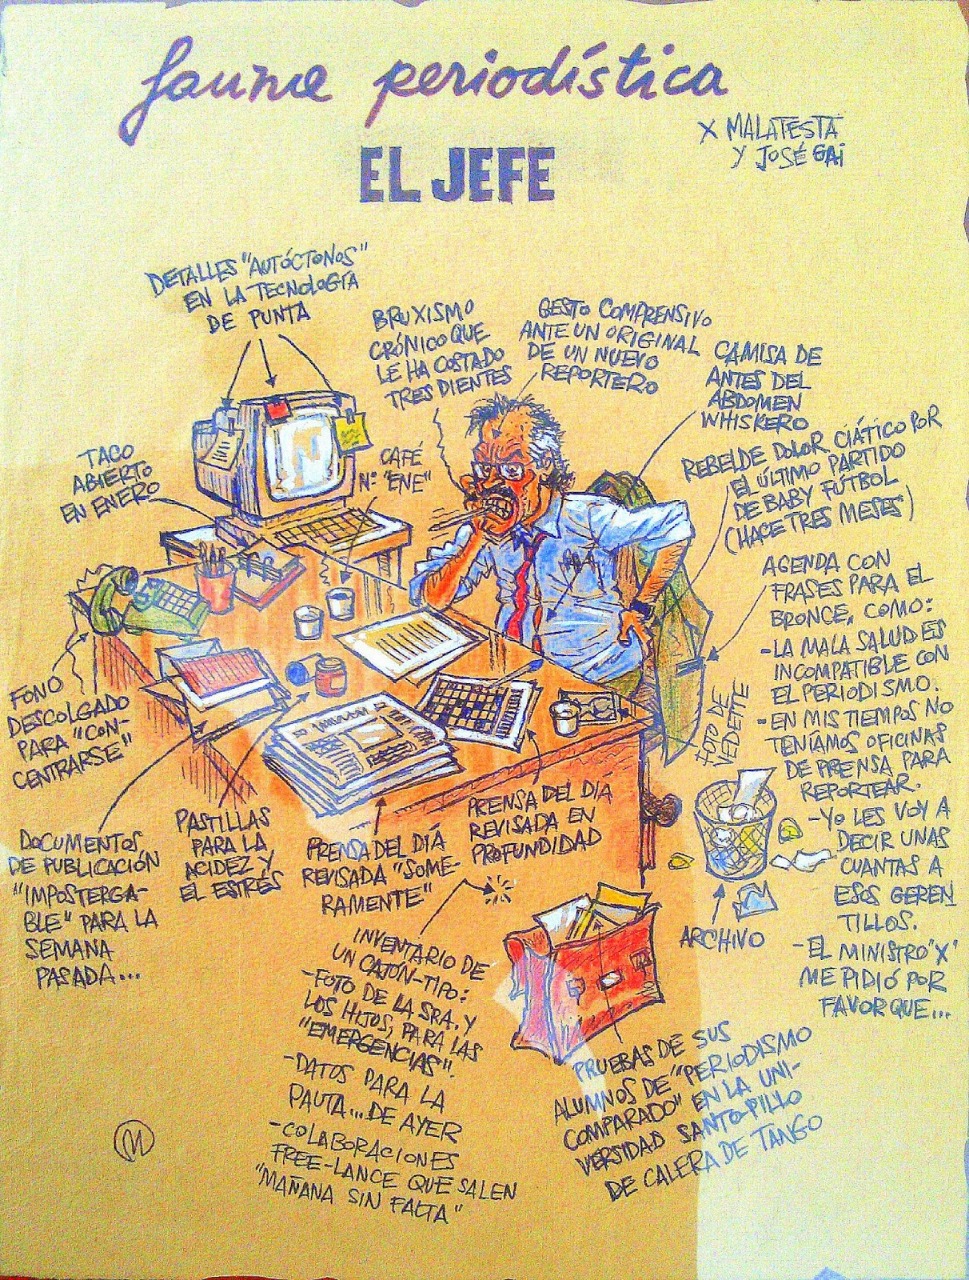 fauna periodística
EL JEFE
X MALATESTA
Y JOSÉ GAI
DETALLES "AUTÓCTONOS"
EN LA TECNOLOGÍA
DE PUNTA
BRUXISMO
CRÓNICO QUE
LE HA COSTADO
TRES DIENTES
GESTO COMPRENSIVO
ANTE UN ORIGINAL
DE UN NUEVO
REPORTERO
CAMISA DE
ANTES DEL
ABDOMEN
WHISKERO
REBELDE DOLOR CIÁTICO POR
EL ÚLTIMO PARTIDO
DE BABY FÚTBOL
(HACE TRES MESES)
TACO
ABIERTO
EN ENERO
CAFÉ
Nº "ENE"
AGENDA CON
FRASES PARA EL
BRONCE, COMO:
-LA MALA SALUD ES
INCOMPATIBLE CON
EL PERIODISMO.
-EN MIS TIEMPOS NO
TENÍAMOS OFICINAS
DE PRENSA PARA
REPORTEAR.
-YO LES VOY A
DECIR UNAS
CUANTAS A
ESOS GEREN
TILLOS.
-EL MINISTRO "X"
ME PIDIÓ POR
FAVOR QUE...
FONO
DESCOLGADO
PARA "CON-
CENTRARSE"
FOTO DE
VEDETTE
DOCUMENTOS
DE PUBLICACIÓN
"IMPOSTERGA-
BLE" PARA LA
SEMANA
PASADA...
PASTILLAS
PARA LA
ACIDEZ Y
EL ESTRÉS
PRENSA DEL DÍA
REVISADA "SOME-
RAMENTE"
PRENSA DEL DÍA
REVISADA EN
PROFUNDIDAD
ARCHIVO
INVENTARIO DE
UN CAJÓN-TIPO:
-FOTO DE LA SRA. Y
LOS HIJOS, PARA LAS
"EMERGENCIAS".
-DATOS PARA LA
PAUTA... DE AYER
-COLABORACIONES
FREE-LANCE QUE SALEN
"MAÑANA SIN FALTA"
PRUEBAS DE SUS
ALUMNOS DE "PERIODISMO
COMPARADO" EN LA UNI-
VERSIDAD SANTO PILLO
DE CALERA DE TANGO
M